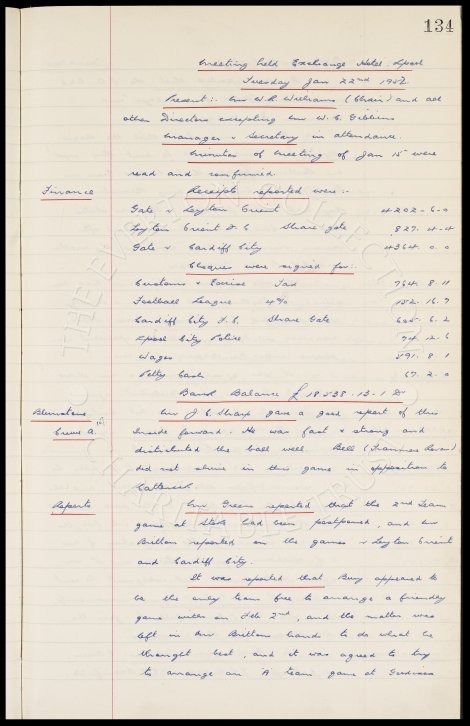 134
Meeting held Exchange Hotel L'pool
Tuesday Jan 22nd 1952.
Present:- Mr W.R. Williams (Chair) and all
other Directors excepting Mr W.C. Gibbins
Manager & Secretary in attendance.
Minutes of Meeting of Jan 15 were
read and confirmed.
Finance Receipts reported were:-
Gate v Leyton Orient 4202-6-0
Leyton Orient F.C. Share gate 827-4-4
Gate v Cardiff City 4364 0.0
Cheques were signed for:-
Customs & Excise Tax 764.8.11
Football League 4% 152.16.7
Cardiff City F.C. Share Gate 6.2
L'pool City Police 74.12.6
Wages 591.8.1
Petty Cash 67.2.0
Bank Balance £18538-13-1 Dr
Blunstone Mr J.C. Sharp gave a good report of this
Crewe A. inside forward. He was fast & strong and
distributed the ball well. Bell (Tranmere Rovers)
did not shine in this game in opposition to
Reports Mr Green reported that the 2nd Team
game at Stoke had been postponed, and Mr
Britton reported on the games v Leyton Orient
and Cardiff City.
It was reported that Bury appeared to
be the only team free to arrange a friendly
game with on Feb 2nd, and the matter was
left in Mr Brittons hands to do what he
thought best, and it was agreed to try
to arrange an 'A' team game at Goodison
THE EVERTON COLLECTION
CHARITABLE TRUST